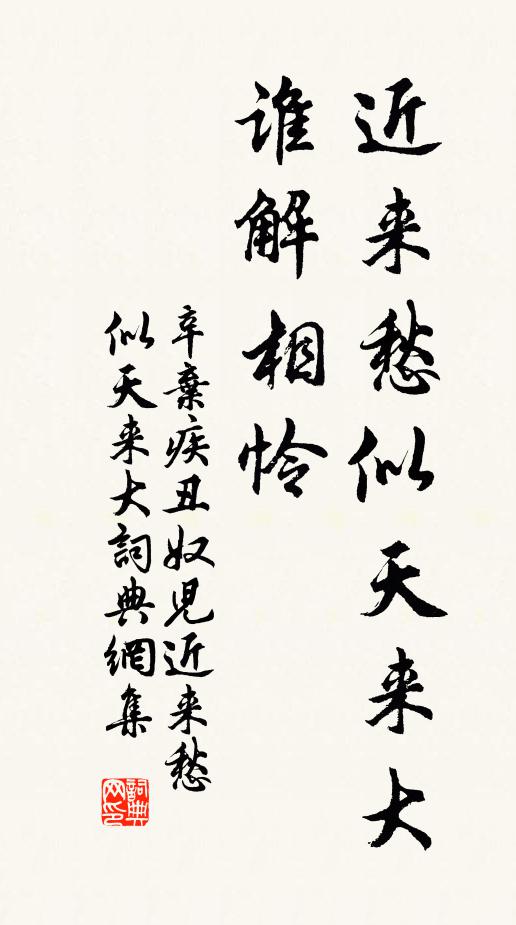 近来愁似天来大
谁解相怜
辛棄疾丑奴児近来愁
似天来大詞典網集
詞典
网印